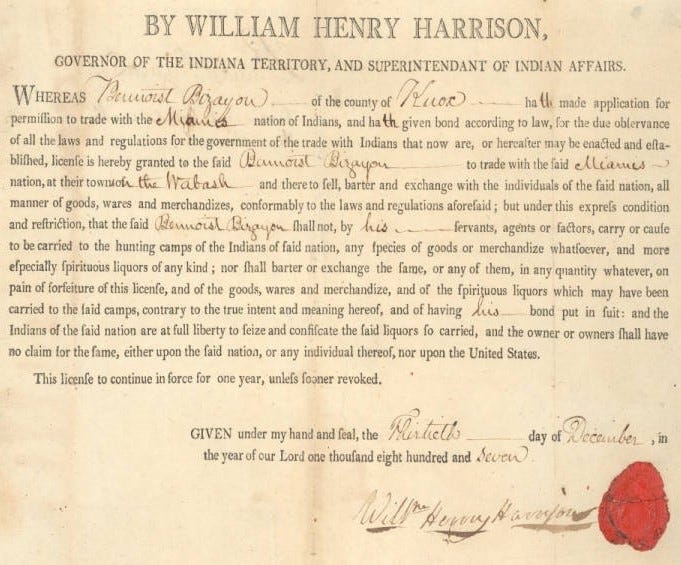 BY WILLIAM HENRY HARRISON,
GOVERNOR OF THE INDIANA TERRITORY, AND SUPERINTENDANT OF INDIAN AFFAIRS.
WHEREAS Bennoist Bizayon of the county of Knox hath made application for
permiſſion to trade with the Miamies nation of Indians, and hath given bond according to law, for the due obſervance
of all the laws and regulations for the government of the trade with Indians that now are, or hereafter may be enacted and eſta-
bliſhed, licenſe is hereby granted to the ſaid Bennoist Bizayon to trade with the ſaid Miamies
nation, at their town on the Wabash and there to ſell, barter and exchange with the individuals of the ſaid nation, all
manner of goods, wares and merchandize, conformably to the laws and regulations aforeſaid; but under this expreſs condition
and reſtriction, that the ſaid Bennoist Bizayon ſhall not, by his ſervants, agents or factors, carry or cauſe
to be carried to the hunting camps of the Indians of ſaid nation, any ſpecies of goods or merchandize whatſoever, and more
eſpecially ſpirituous liquors of any kind; nor ſhall barter or exchange the ſame, or any of them, in any quantity whatever, on
pain of forfeiture of this licenſe, and of the goods, wares and merchandize, and of the ſpirituous liquors which may have been
carried to the ſaid camps, contrary to the true intent and meaning hereof, and of having his bond put in ſuit: and the
Indians of the ſaid nation are at full liberty to ſeize and confiſcate the ſaid liquors ſo carried, and the owner or owners ſhall have
no claim for the ſame, either upon the ſaid nation, or any individual thereof, nor upon the United States.
This licenſe to continue in force for one year, unleſs ſooner revoked.
GIVEN under my hand and ſeal, the Thirtieth day of December, in
the year of our Lord one thouſand eight hundred and Seven.
Willm Henry Harrison